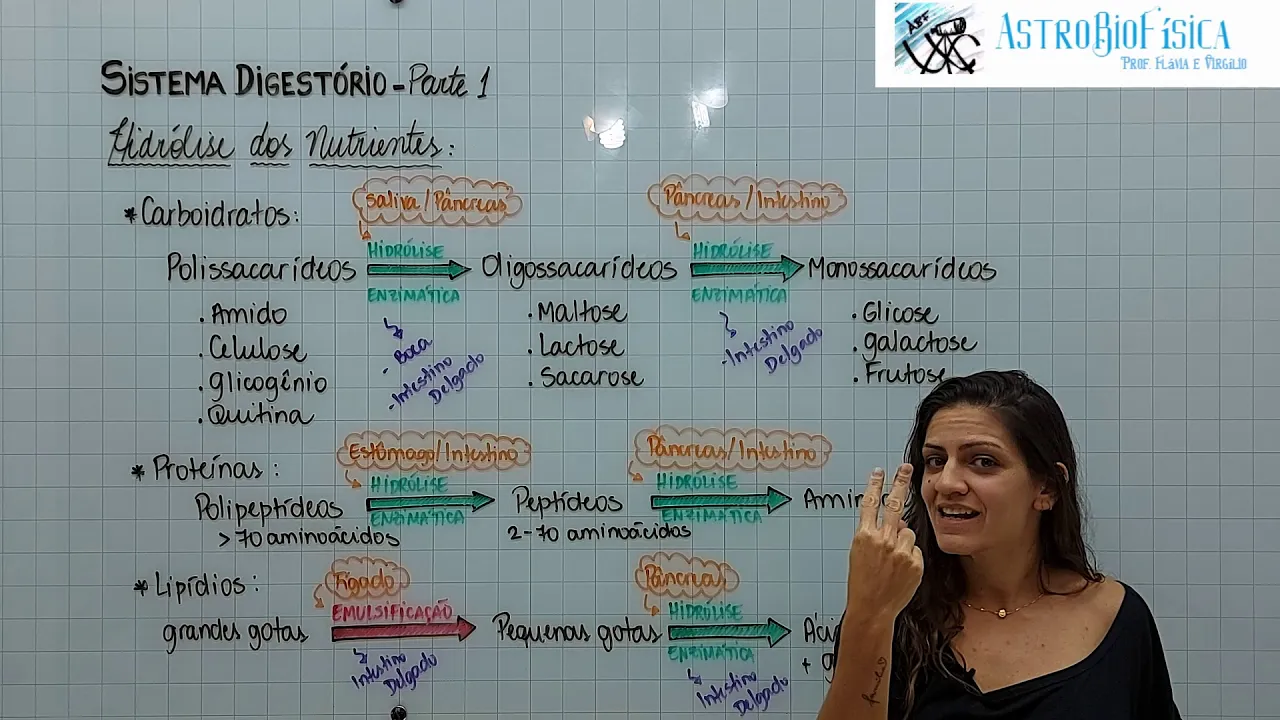 ABF
ASTROBIOFÍSICA
PROF. FLÁVIA E VIRGÍLIO
SISTEMA DIGESTÓRIO - Parte 1
Hidrólise dos Nutrientes:
* Carboidratos:
Saliva/Pâncreas
Pâncreas/Intestino
HIDRÓLISE
HIDRÓLISE
Polissacarídeos
Oligossacarídeos
Monossacarídeos
ENZIMÁTICA
ENZIMÁTICA
. Amido
. Celulose
. Glicogênio
. Quitina
- Boca
- Intestino
Delgado
. Maltose
. Lactose
. Sacarose
- Intestino
Delgado
. Glicose
. galactose
. Frutose
* Proteínas:
Estômago/Intestino
Pâncreas/Intestino
HIDRÓLISE
HIDRÓLISE
Polipeptídeos
Peptídeos
Amin
ENZIMÁTICA
ENZIMÁTICA
> 70 aminoácidos
2-70 aminoácidos
* Lipídios:
Fígado
Pâncreas
EMULSIFICAÇÃO
HIDRÓLISE
grandes gotas
Pequenas gotas
Áci
ENZIMÁTICA
+ g
Intestino
Delgado
Intestino
Delgado
família